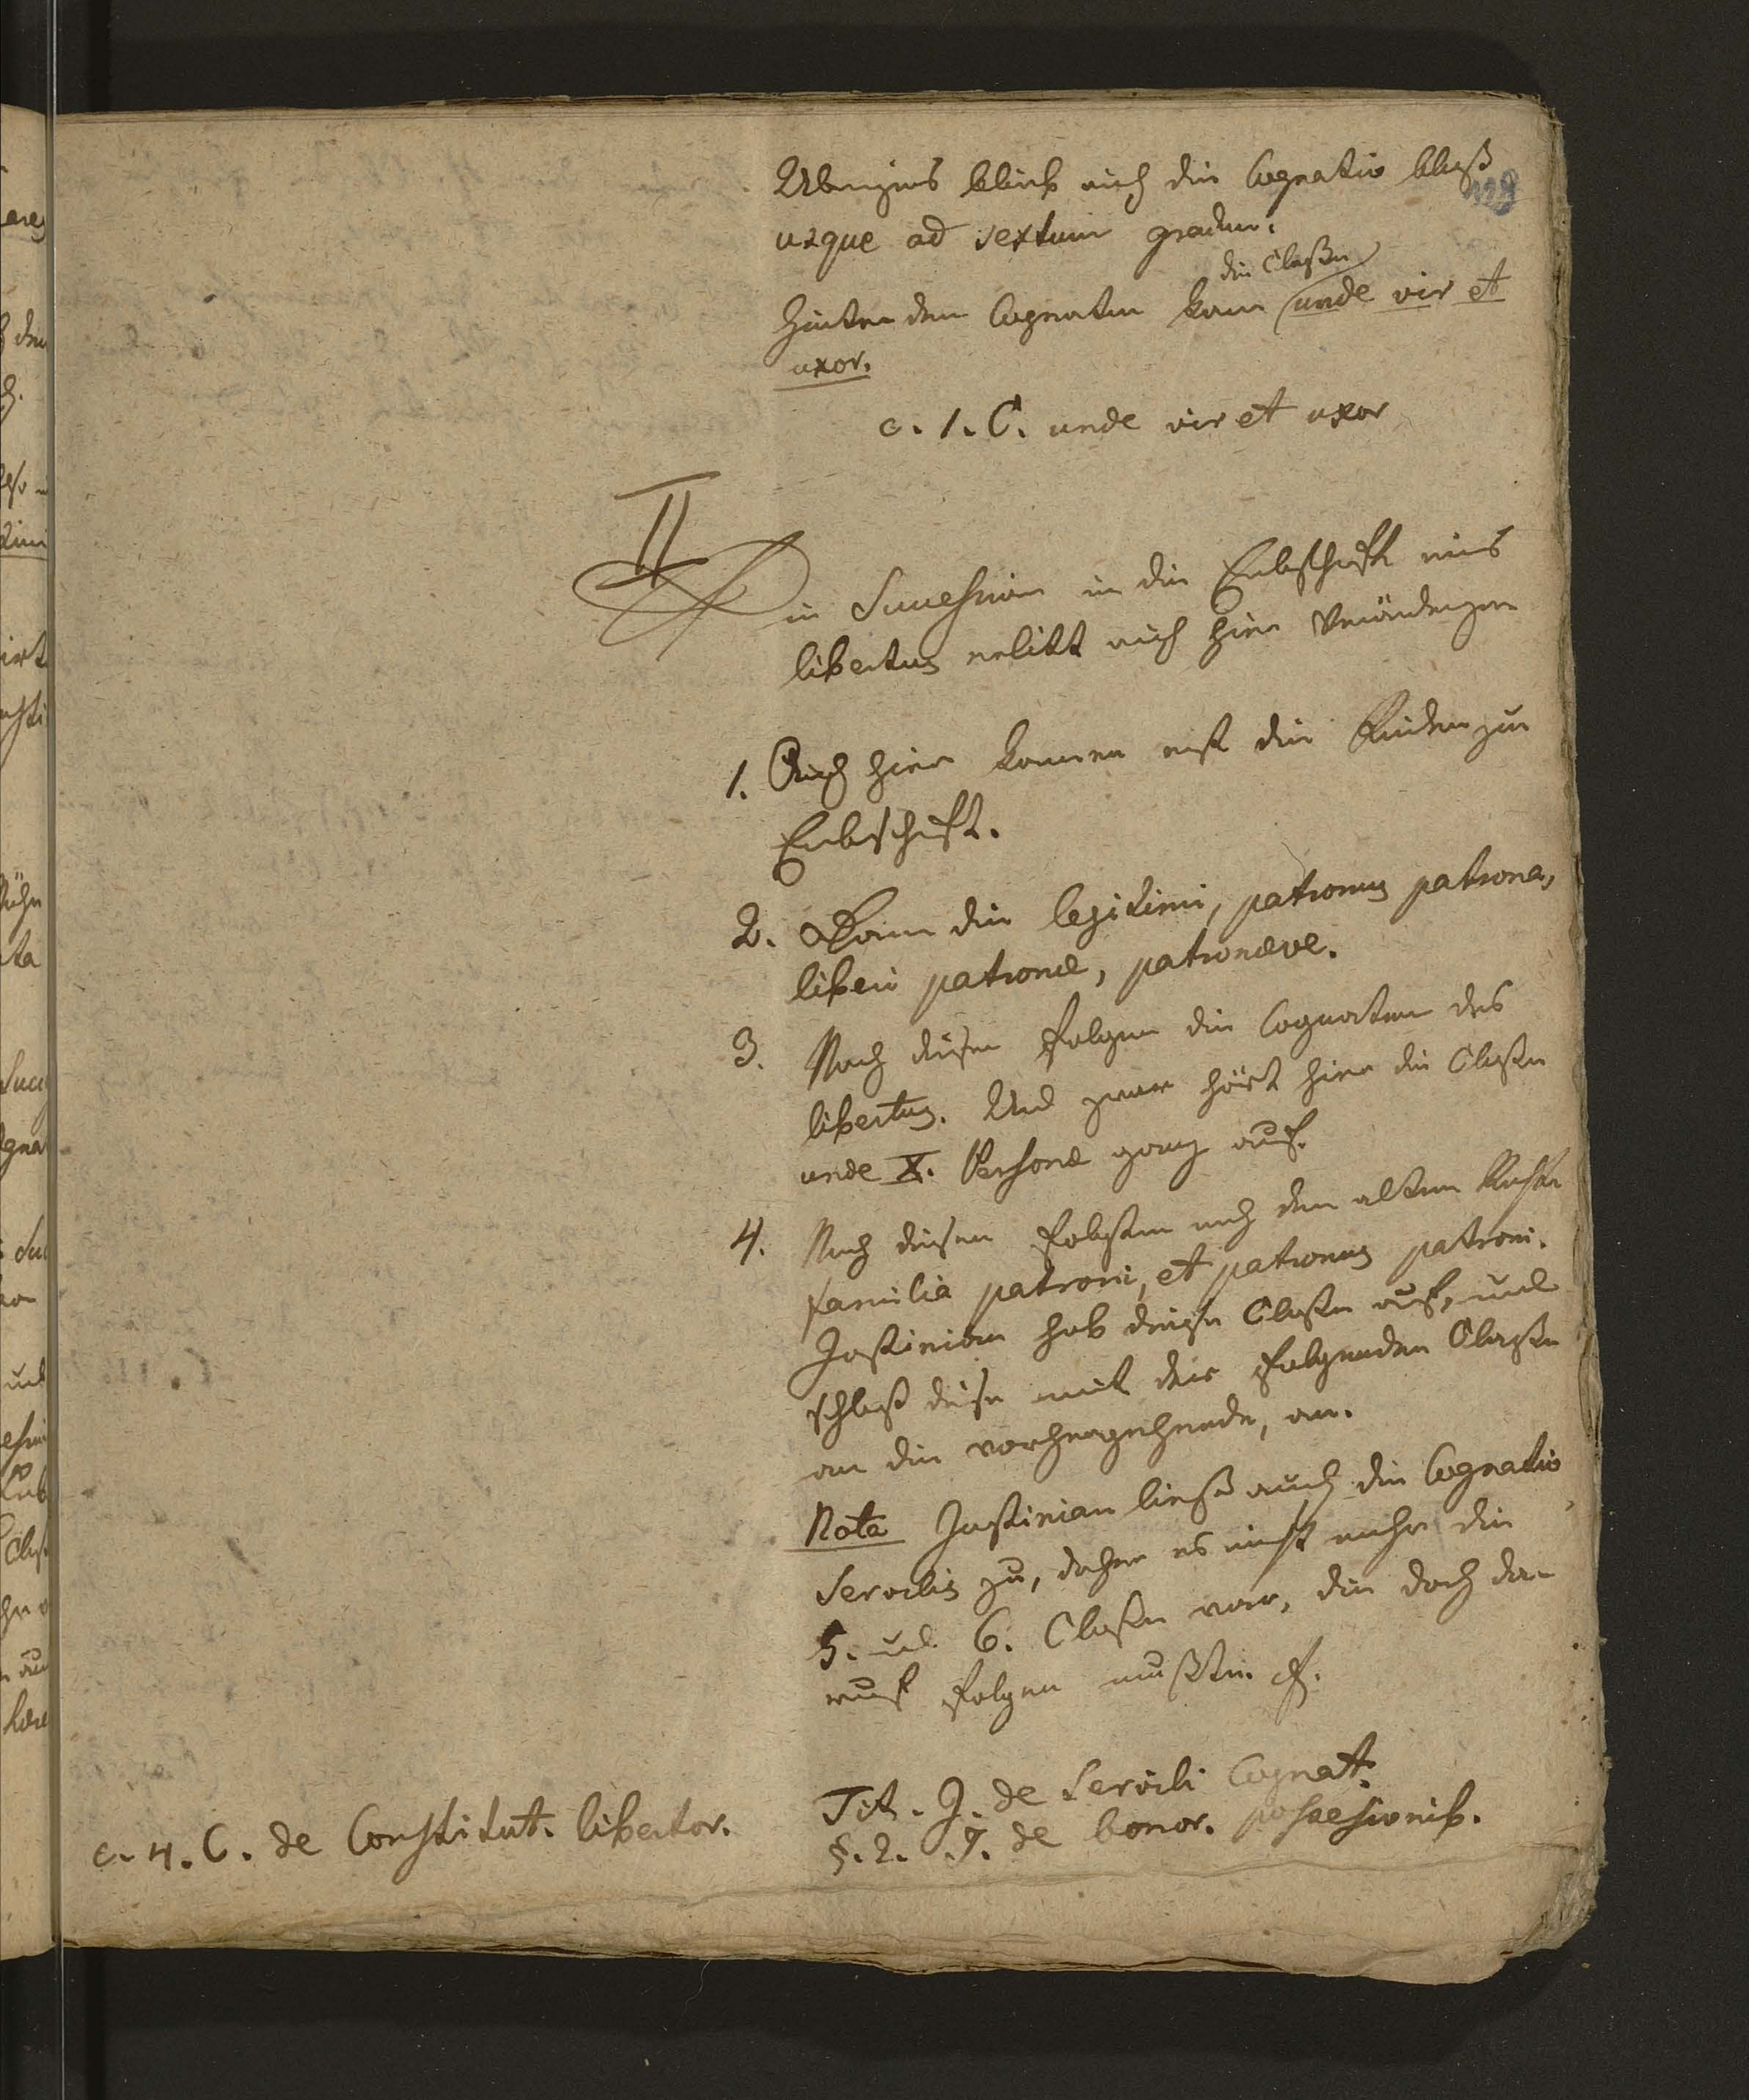 Ubrigens blieb auch die Cognatio bloß
usque ad sextum gradum.
die Claßen
Hinter den Cognaten kam unde vir et
uxor.
c. 1. C. unde vir et uxor
II
Die Succession in die Erbschaft eines
libertus erlitt auch hier Veränderungen
1. Auch hier kommen erst die Kinder zur
Erbschaft.
2. Kam die legitimi, patronus patrona,
liberi patronæ, patronæve.
3. Nach diesen folgen die Cognaten des
libertus. Und zwar hört hier die Claßen
unde X. Personæ ganz auf.
4. Nach diesen folgten nach dem alten Rechte
familia patroni, et patronus patroni.
Justinian hob diese Claßen auf, und
schloß diese mit der folgenden Claßen
an die vorhergehende, an.
Nota Justinian ließ auch die Cognatio
Servilis zu, daher es nicht mehr die
5. und 6. Claßen war, die doch da-
rauf folgen mußten
Tit. J. de Servili Cognat.
§. 2. J. de bonor. possessionib.
c. 4. C. de Constitut. libertor.